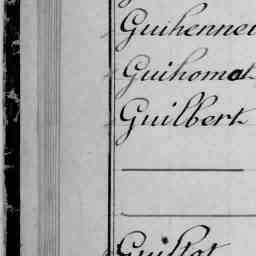 Guihennei
Guihomat
Guilbert
Guillot